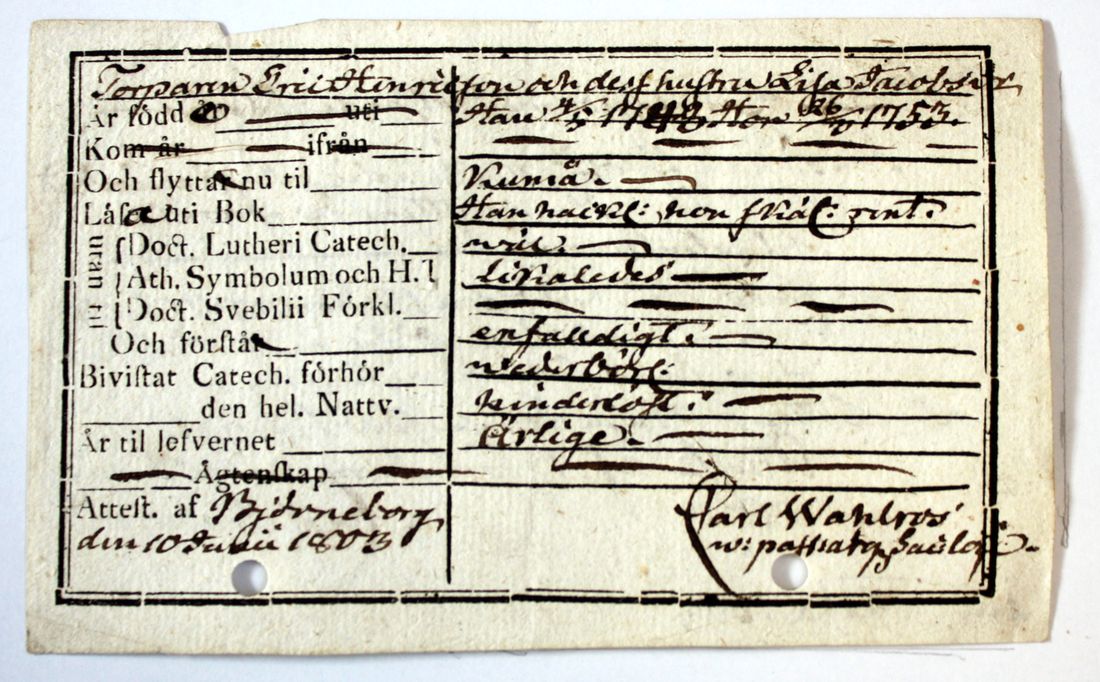 Torparen Eric Henricsson och dess hustru Lisa Jacobsdr
Är född uti Han 4/5 1748 Hon 26/8 1753.
Kom år ifrån
Och flyttar nu til Kumå.
Låsa uti Bok Han nöickl: hon
Doct. Lutheri Catech. wäl.
Innan Ath. Symbolum och H. T likaledes
Doct. Svebilii Förkl.
Och förstår enfaldigt.
Bivistat Catech. förhör wederbörl:
den hel. Nattv. hinderlöst:
År til lefvernet Ärlige.
Ägtenskap
Attest. af Björneborg Carl Wahlroos
den 10 Junii 1803